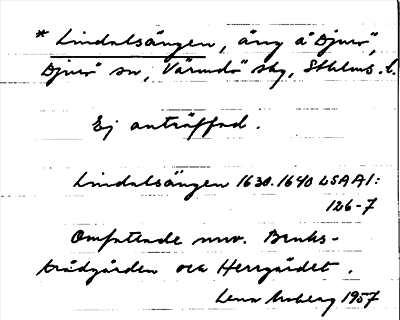 * Lindalsängen, äng å Djurö,
Djurö sn, Värmdö skg, Sthlms l.
Ej anträffad.
Lindalsängen 1630.1640 LSA A1:
126-7
Omfattade nuv. Bruks-
trädgården och Herrgärdet.
Lena Moberg 1957